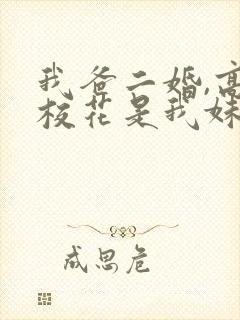 我爸二婚,高
校花是我妹
成思危